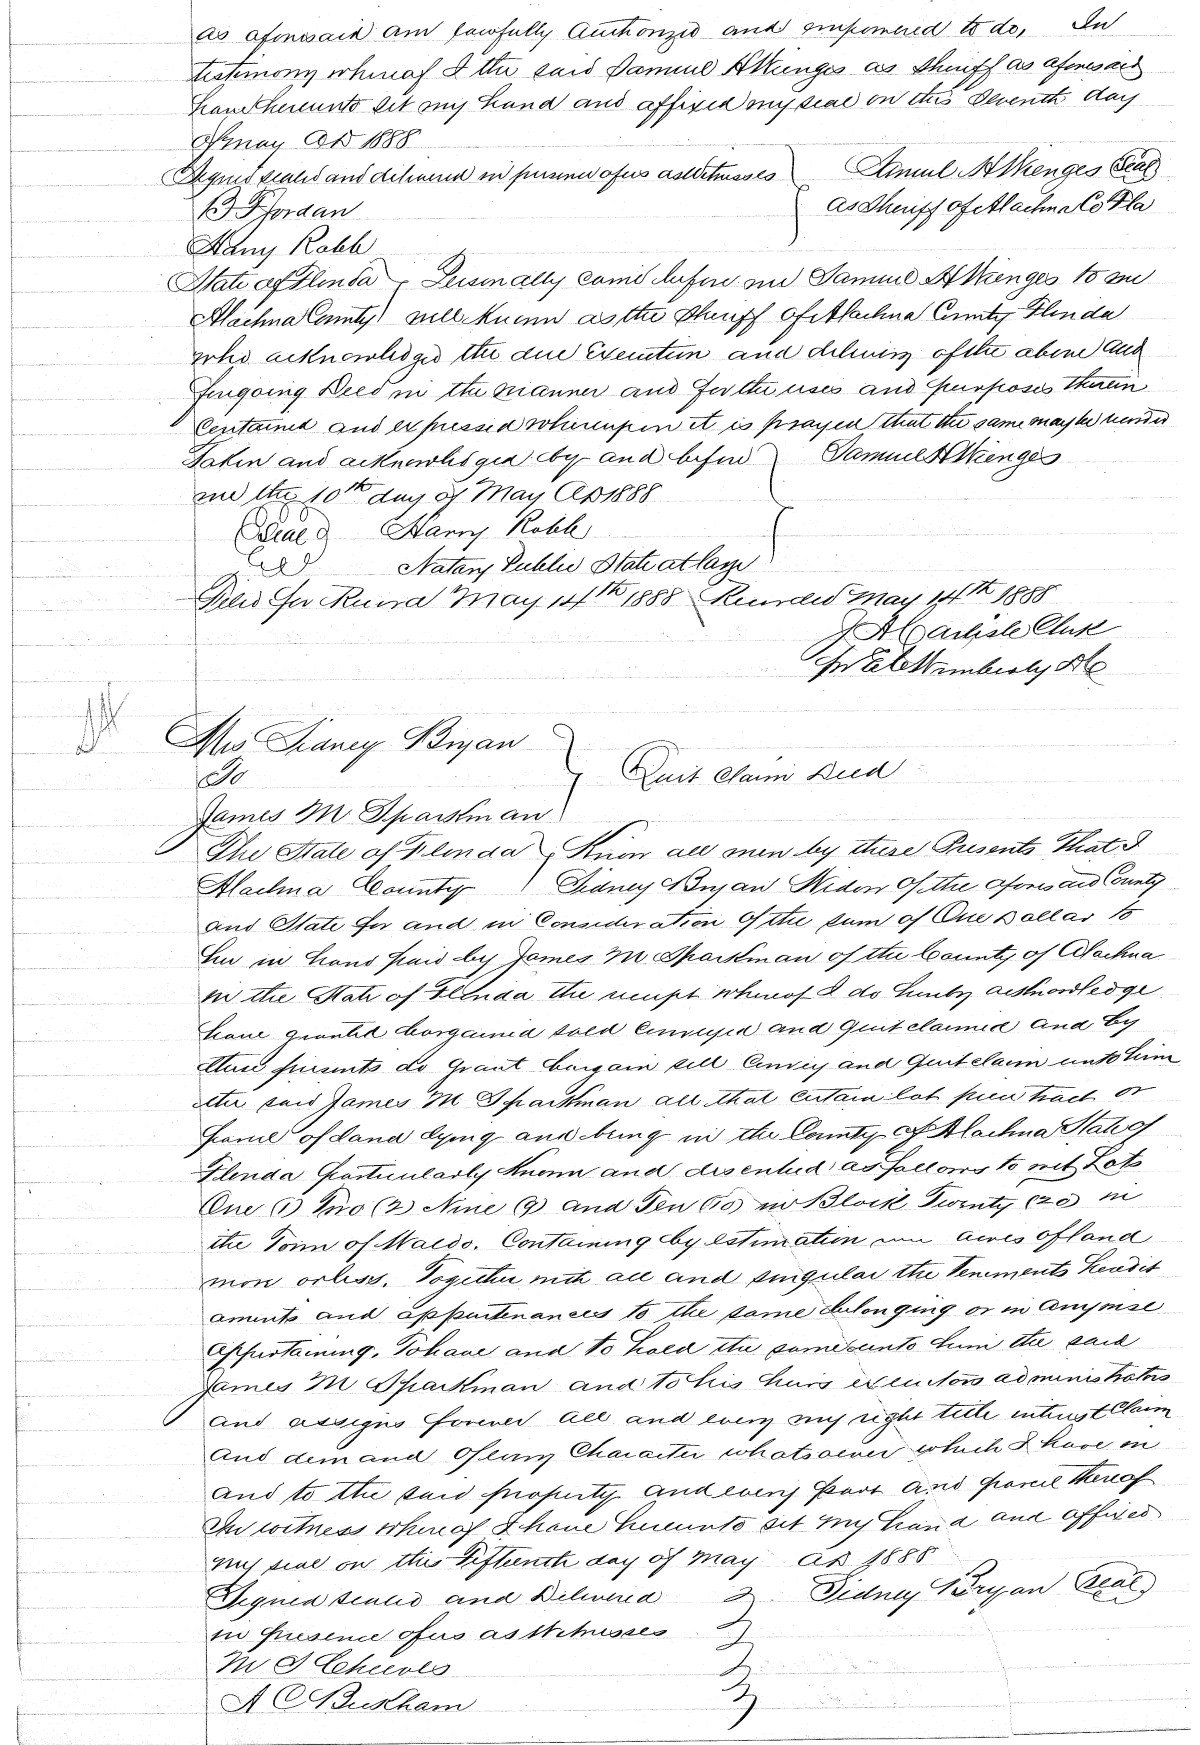 as aforesaid am lawfully Authorized and empowered to do, In
testimony whereof I the said Samuel H Wienges as Sheriff as aforesaid
have hereunto set my hand and affixed my seal on this Seventh day
of May AD 1888
Signed sealed and delivered in presence of us as Witnesses Samuel H Wienges Seal
B F Jordan as Sheriff of Alachua Co Fla
Harry Robb
State of Florida Personally came before me Samuel H Wienges to me
Alachua County well known as the Sheriff of Alachua County Florida
who acknowledged the due Execution and delivery of the above and
foregoing Deed in the manner and for the uses and purposes therein
Contained and expressed whereupon it is prayed that the same may be recorded
Taken and acknowledged by and before Samuel H Wienges
me the 10th day of May AD 1888
(Seal) Harry Robb
Notary Public State at large
Filed for Record May 14th 1888 Recorded May 14th 1888
J A Carlisle Clerk
Wimberly DC
Mrs Sidney Bryan
To Quit Claim Deed
James M Sparkman
The State of Florida Know all men by these Presents That I
Alachua County Sidney Bryan Widow of the aforesaid County
and State for and in Consideration of the sum of One Dollar to
her in hand paid by James M Sparkman of the County of Alachua
in the State of Florida the receipt whereof I do hereby acknowledge
have granted bargained sold conveyed and quit claimed and by
these presents do grant bargain sell Convey and quit claim unto him
the said James M Sparkman all that certain lot piece tract or
parcel of land lying and being in the County of Alachua State of
Florida particularly known and described as follows to wit Lots
One (1) Two (2) Nine (9) and Ten (10) in Block Twenty (20) in
the Town of Waldo. Containing by estimation acres of land
more or less. Together with all and singular the Tenements heredit
aments and appurtenances to the same belonging or in anywise
appertaining. To have and to hold the same unto him the said
James M Sparkman and to his heirs executors administrators
and assigns forever all and every my right title interest Claim
and demand of every Character whatsoever which I have in
and to the said property and every part and parcel thereof
In witness whereof I have hereunto set my hand and affixed
my seal on this Fifteenth day of May AD 1888
Signed sealed and Delivered Sidney Bryan (Seal)
in presence of us as Witnesses